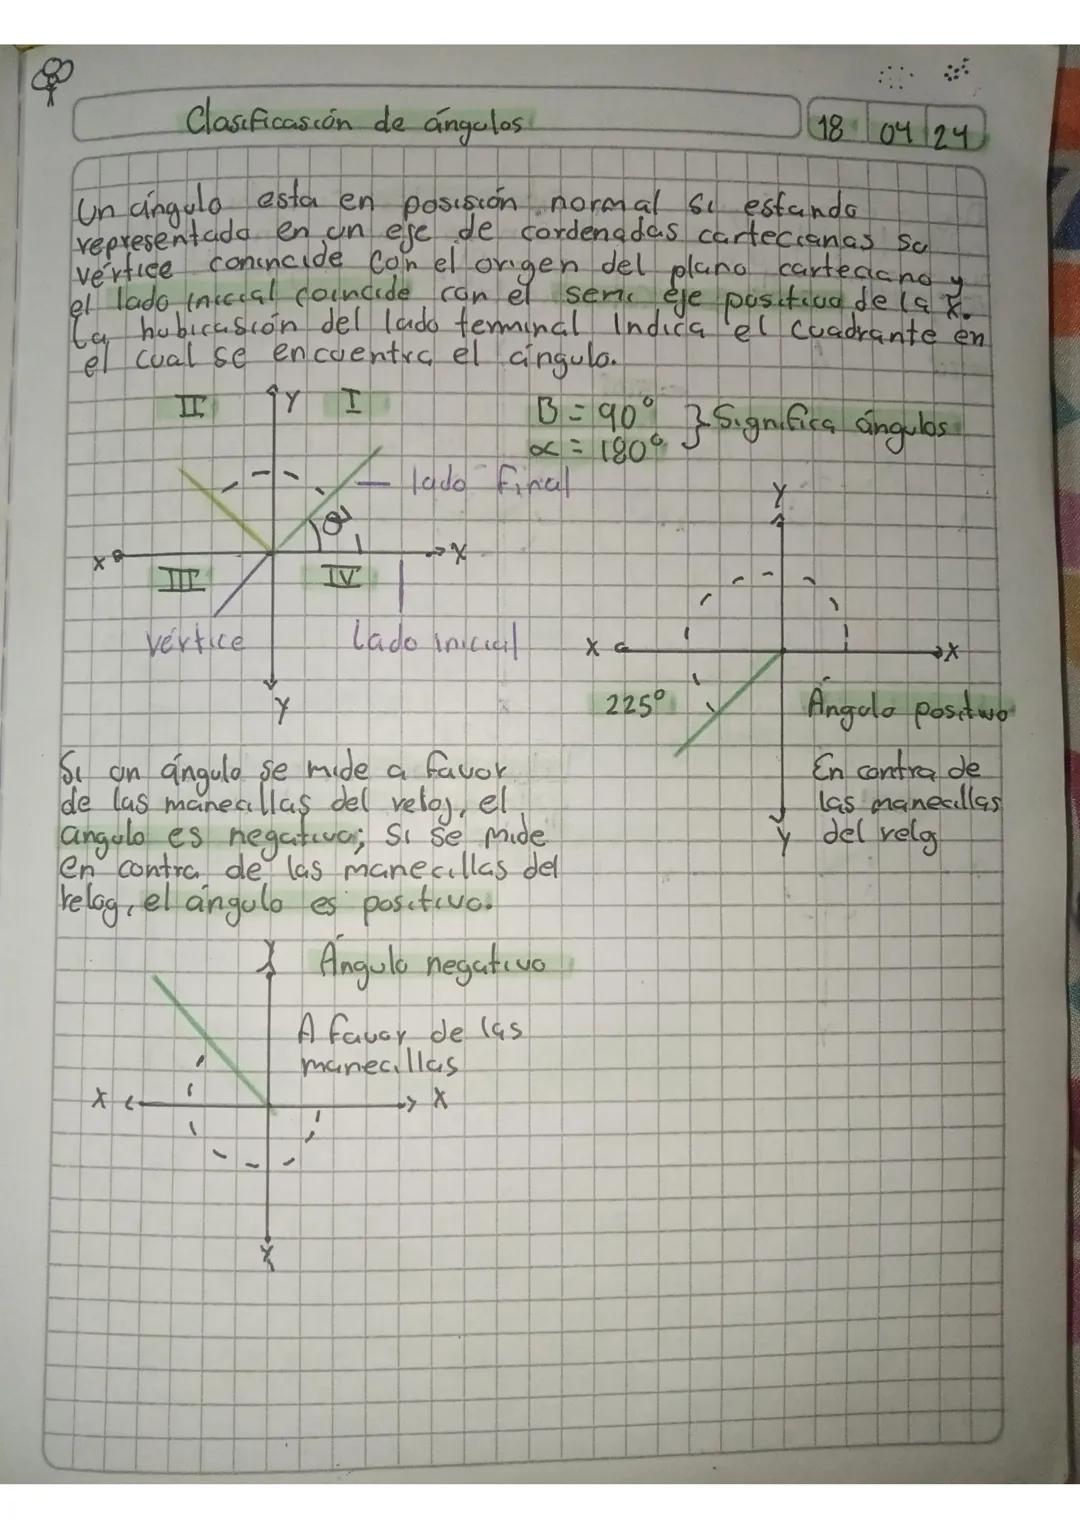 Clasificasión de ángulos
18 04 24
Un ángulo esta en posisión normal si estando
representado en un eje de cordenadas cartecianas su
vértice conincide con el origen del plano carteciano y
el lado inicial coincide con el semi eje positivo de la x.
La hubicasión del lado terminal Indica el cuadrante en
el cual se encuentra el ángulo.
II Y I
B = 90° } Significa ángulos
α = 180°
lado Final
Y
X X
III IV
vértice Lado inicial
X X
Y
225° Ángulo positivo
Si un ángulo se mide a favor
de las manecillas del reloj, el
angulo es negativo; Si se mide
en contra de las manecillas del
relog, el ángulo es positivo.
En contra de
las manecillas
Y del relog
Y Ángulo negativo
A favor de las
manecillas
X X
Y